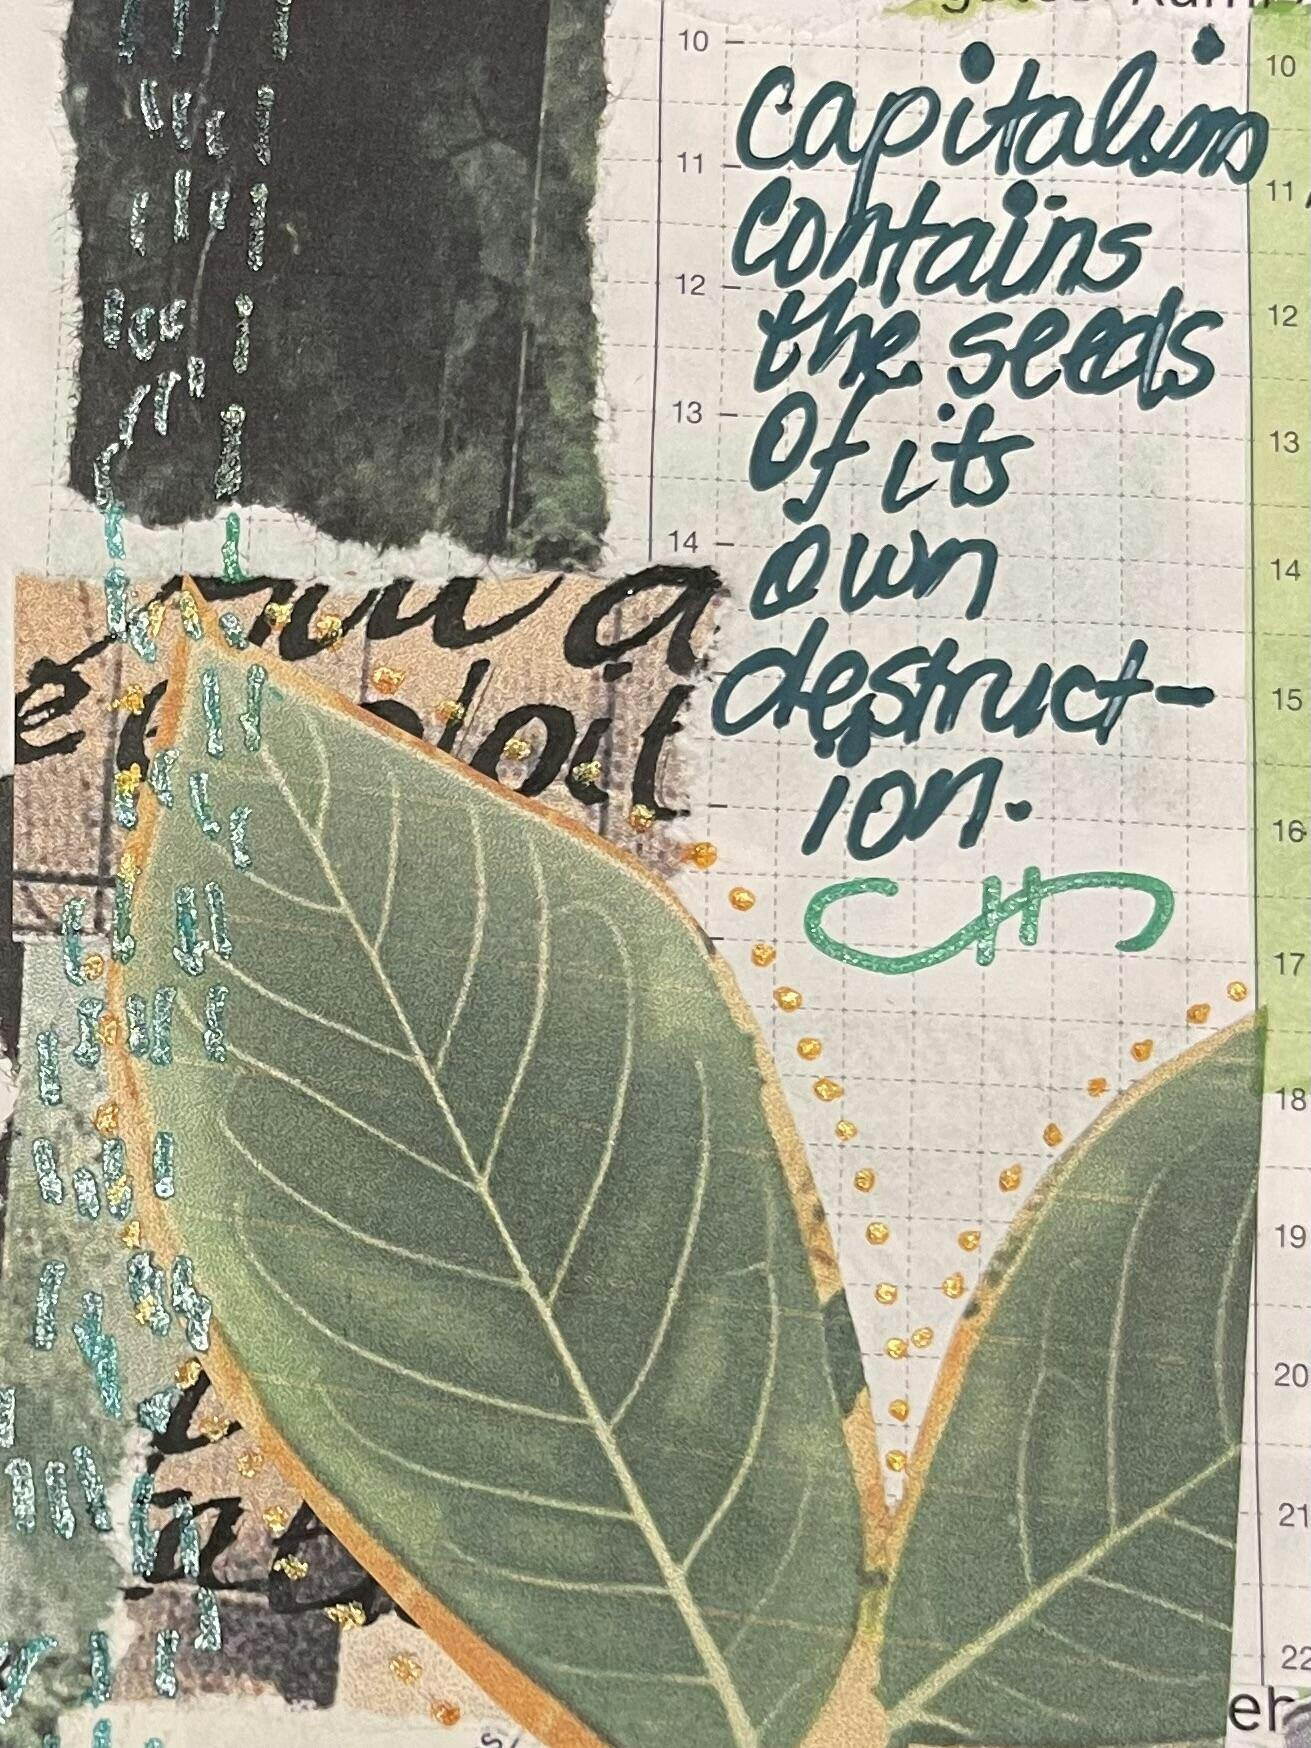 capitalism
contains
the seeds
Of its
own
destruct-
ion.
10
11
12
13
14
10
11
12
13
14
15
16
17
18
19
20
21
22
a
er